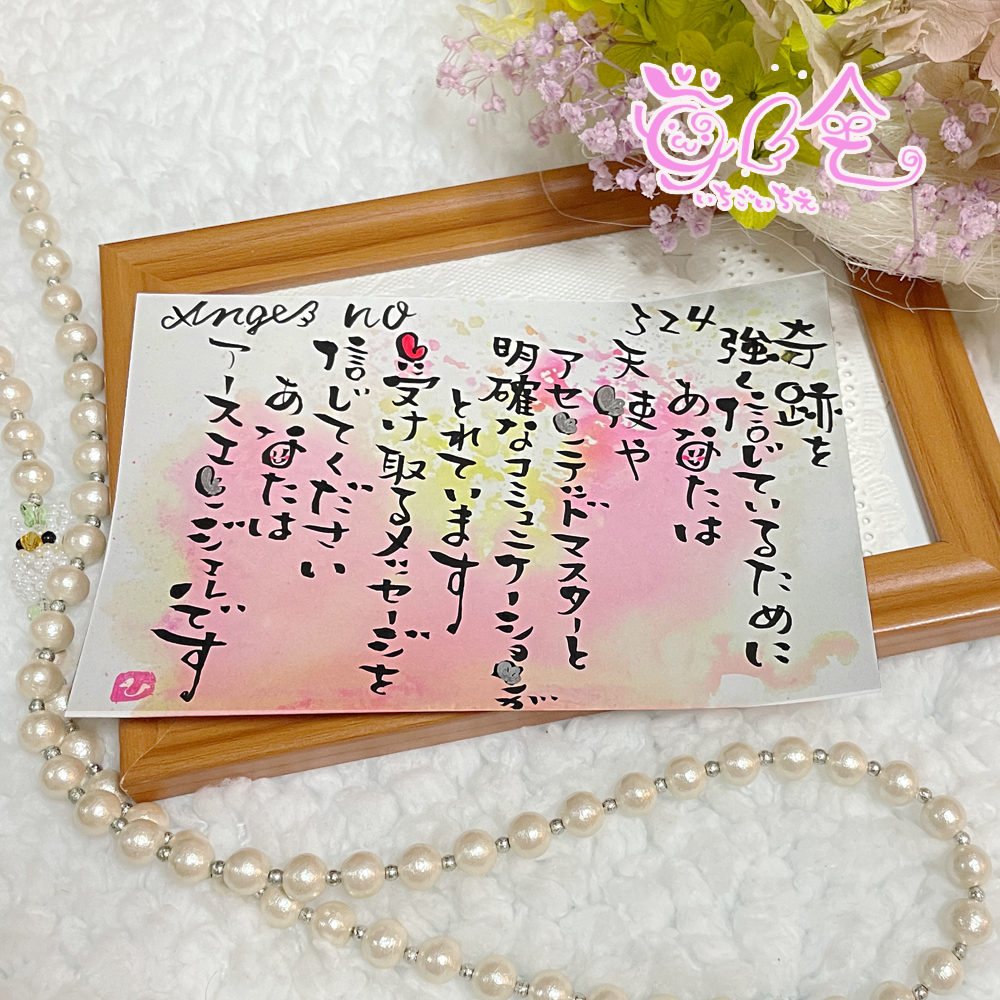 Anges no
324
奇跡を
強く信じているために
あ母たは
天使や
アセンデッドマスターと
明確なコミュニケーションが
とれています
受け取るメッセージを
信じてください
あ母たは
アースエンジェルです
いちごいちえ